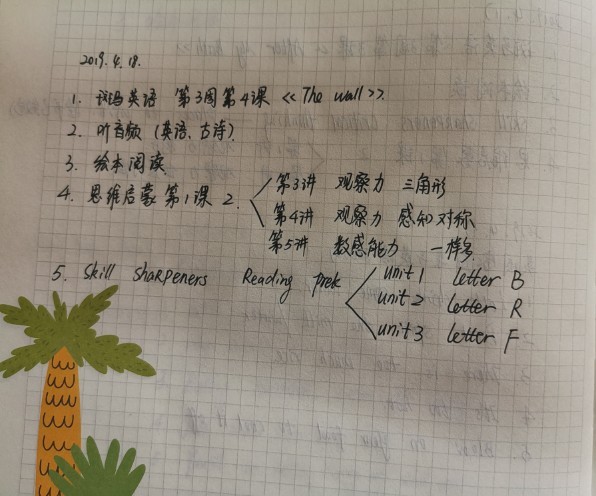 2019.4.18.
1. 斑马英语 第3周第4课 <<The wall>>.
2. 听音频 (英语、古诗)
3. 绘本阅读.
4. 思维启蒙 第1课 2.
第3讲 观察力 三角形
第4讲 观察力 感知对称
第5讲 数感能力 一样多
5. Skill Sharpeners Reading prek
unit 1 letter B
unit 2 letter R
unit 3 letter F